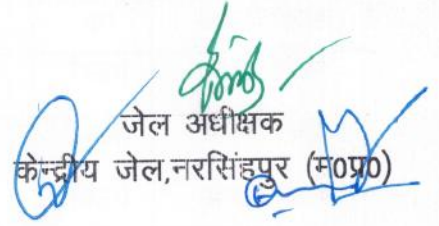 जेल अधीक्षक
केन्द्रीय जेल,नरसिंहपुर (म०प्र०)